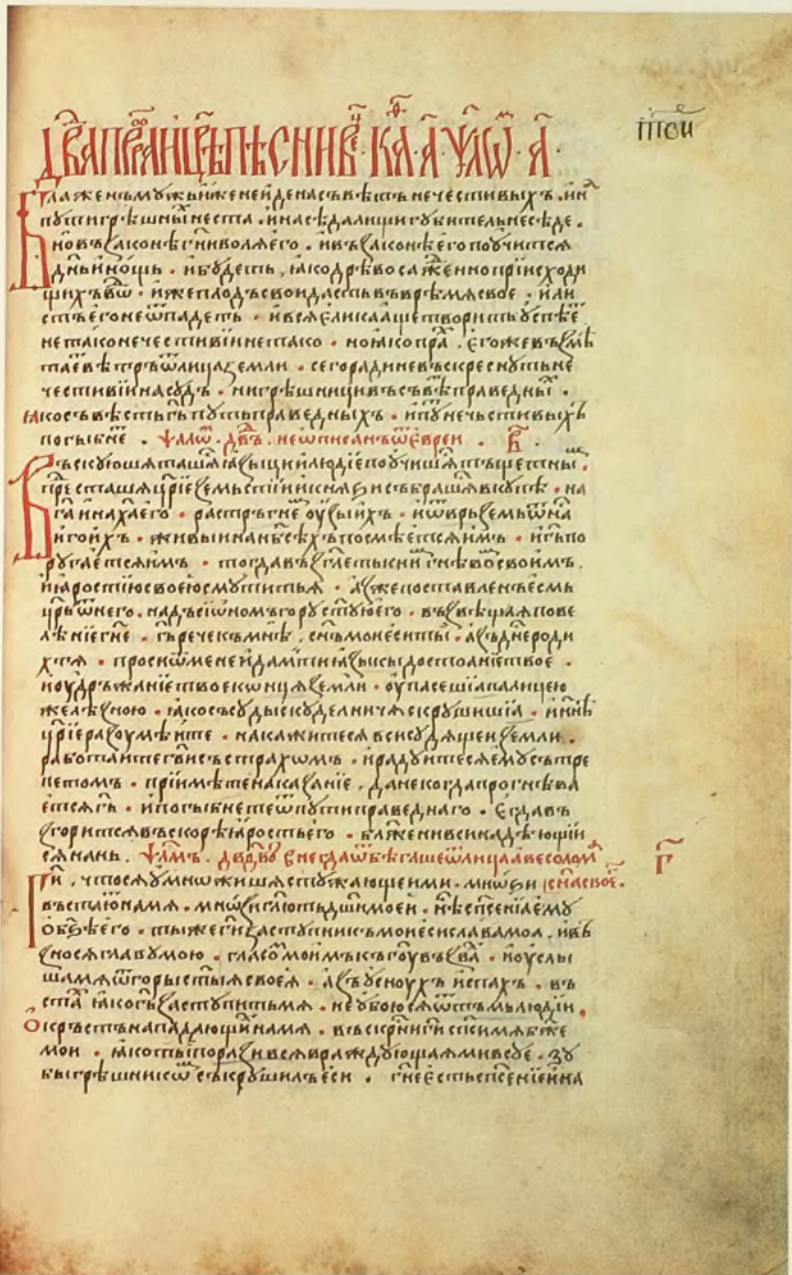 дв҃да прⷪ҇рка и цр҃ѣ пѣсни в҃ · кА҃ · а҃ · ѱаⷧ҇ѡⷨ · а҃ ·
Блаженъ мужь иже не иде на съвѣтъ нечестивыхъ . и нⷶ
пути грѣшныⷯ не ста . и на сѣдалищи губитель не сѣде .
но въ законѣ гн҃и волѧ его . и въ законѣ его поучитсѧ
дн҃ь и нощь . и будеть , ꙗко дрѣво сажⷣенно при исходи
щихъ вѡⷣ . иже плодъ свои дасть въ врѣмѧ свое . и ли
стъ его не ѿпадеть . и всѧ елика аще творить успѣеⷮ
не тако нечестивїи не тако . но ꙗко праⷯ . егоже възмѣ
таеⷮ вѣтръ ѿ лица земли . сего ради не въскреснуть не
честивїи на судъ . ни грѣшници въ съвѣⷮ праведныⷯ .
ꙗко съвѣсть гь҃ путь праведныхъ . и пуⷮ нечьстивыхъ
погыбнеⷮ . ѱалѡⷨ . дв҃дъ . не ѡписанъ ѿ еврѣи . в҃ .
Въскую шѧташѧⷭ ꙗзыци и людїе поучишѧⷭ тъщетныⷨ .
прⷣесташѧ цр҃їе земьстїи и кнѧзи събрашѧⷭ вкупѣ . на
га҃ и на ха҃ его . растръгнеⷨ оузы ихъ . и ѿврьземъ ѿ наⷭ
иго ихъ . живыи на нб҃сѣхъ посмѣетсѧ имъ . и гь҃ по
ругаетсѧ имъ . тогда възг҃леть к ниⷨ гнѣвоⷨ своимъ .
и ꙗростїю своею смутить ѧ . азже поставленъ есмь
цр҃ь ѿ него . надъ сїѡномъ горую ст҃ую его . възвѣщаѧ пове
лѣнїе гн҃е . гь҃ рече къ мнѣ , сн҃ъ мои еси ты . азъ днⷭ҇ь роди
х тѧ . проси ѿ мене и дам ти ꙗзыкы достоанїе твое .
и оудръжанїе твое кѡнцѧ земли . оупасеши ꙗ палицею
желѣзною . ꙗко съсуды скуделничѧ скрушиши ꙗ . и нн҃ѣ
цр҃їе разоумѣите . накажитесѧ вси судѧщеи земли .
работаите гв҃и съ страхѡмъ . и радуитесѧ ему съ тре
петомъ . прїимѣте наказанїе , да не когда прогнѣва
етсѧ гь҃ . и погыбнете ѿ пути праведнаго . егда въ
згоритсѧ въскорѣ ꙗрость его . блⷤени вси надѣющїи
сѧ на нь . ѱаⷧ҇мъ . дв҃дву внегда ѿбѣгаше ѿ лица авесолоⷨ г҃
Ги҃ , что сѧ умножишѧ стужающеи ми . мнѡзи сн҃а своеⷢ .
въсташѧ на мѧ . мнѡзи гл҃ють дш҃и моеи . нѣⷭ сп҃сенїа ему
о бз҃ѣ его . ты же ги҃ заступникъ мои еси слава моа . и въ
зносѧ главу мою . гласоⷨ моимъ къ гоу҃ възваⷯ . и оуслы
ша мѧ ѿ горы ст҃ыѧ своеѧ . азъ уснухъ и спахъ . въ
стаⷯ ꙗко гь҃ заступить мѧ . не убоюсѧ ѿ тъмы людїи ,
окръсть нападающиⷯ на мѧ . въскрⷭ҇ни ги҃ сп҃си мѧ бж҃е
мои . ꙗко ты порази всѧ враждующаѧ ми всуе . зу
бы грѣшникѡⷨ съкрушилъ еси . гн҃е есть сп҃сенїе и на